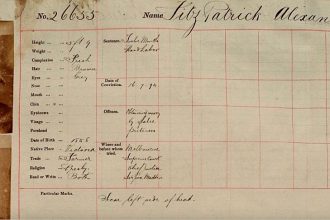 No. 26633 Name FitzPatrick Alexan
Height 5 ft 9
Weight
Complexion Fresh
Hair Brown
Eyes Grey
Nose
Mouth
Chin
Eyebrows
Visage
Forehead
Date of Birth 1858
Native Place Ireland
Trade Farmer
Religion Presby.
Read or Write Both
Sentence. Months
Hard Labor
Date of Conviction. 16.7.94
Offence. by false
pretences
Where and before whom tried. Melbourne
Supreme Court
Particular Marks. Scar left side of head.